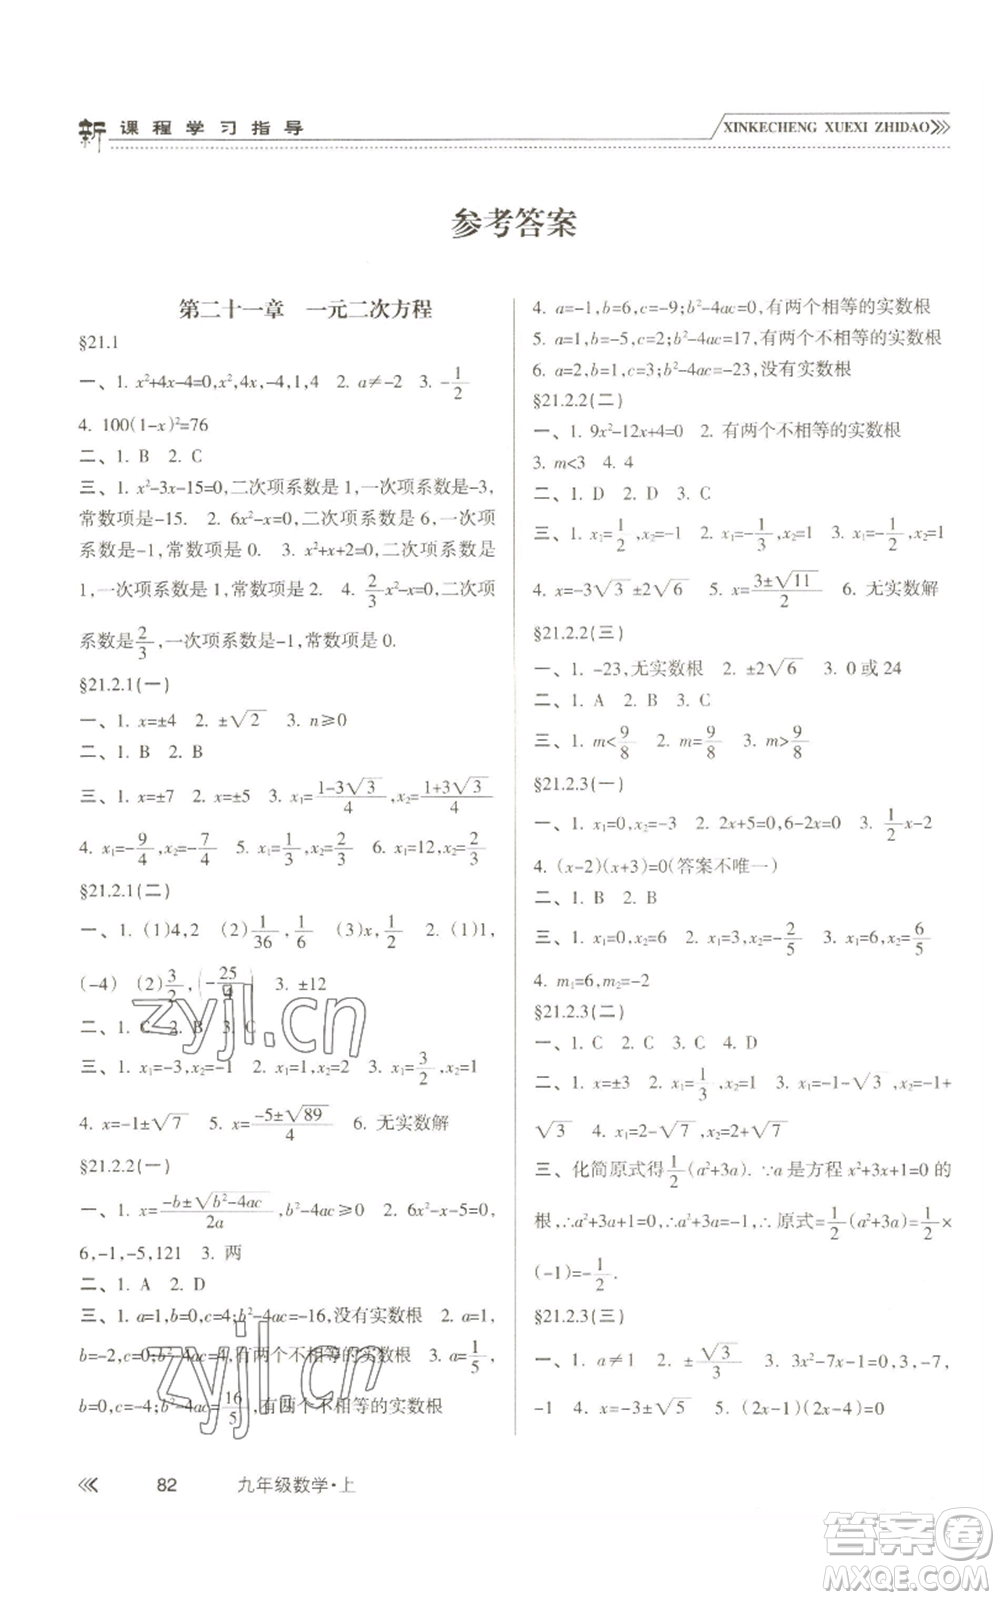 新课程学习指导
XINKECHENG XUEXI ZHIDAO
参考答案
第二十一章 一元二次方程
§21.1
一、1. x²+4x-4=0,x²,4x,-4,1,4 2. a≠-2 3. -1/2
4. 100(1-x)²=76
二、1. B 2. C
三、1. x²-3x-15=0,二次项系数是1,一次项系数是-3,
常数项是-15. 2. 6x²-x=0,二次项系数是6,一次项
系数是-1,常数项是0. 3. x²+x+2=0,二次项系数是
1,一次项系数是1,常数项是2. 4. 2/3x²-x=0,二次项
系数是2/3,一次项系数是-1,常数项是0.
§21.2.1(一)
一、1. x=±4 2. ±√2 3. n≥0
二、1. B 2. B
三、1. x=±7 2. x=±5 3. x₁=(1-3√3)/4,x₂=(1+3√3)/4
4. x₁=-9/4,x₂=-7/4 5. x₁=1/3,x₂=2/3 6. x₁=12,x₂=2/3
§21.2.1(二)
一、1. (1)4,2 (2)1/36,1/6 (3)x,1/2 2. (1)1,
(-4) (2)3/2,(-25/4) 3. ±12
二、1. C 2. B 3. C
三、1. x₁=-3,x₂=-1 2. x₁=1,x₂=2 3. x₁=3/2,x₂=1
4. x=-1±√7 5. x=(-5±√89)/4 6. 无实数解
§21.2.2(一)
一、1. x=(-b±√(b²-4ac))/2a,b²-4ac≥0 2. 6x²-x-5=0,
6,-1,-5,121 3. 两
二、1. A 2. D
三、1. a=1,b=0,c=4;b²-4ac=-16,没有实数根 2. a=1,
b=-2,c=0;b²-4ac=4,有两个不相等的实数根 3. a=1/5,
b=0,c=-4;b²-4ac=16/5,有两个不相等的实数根
4. a=-1,b=6,c=-9;b²-4ac=0,有两个相等的实数根
5. a=1,b=-5,c=2;b²-4ac=17,有两个不相等的实数根
6. a=2,b=1,c=3;b²-4ac=-23,没有实数根
§21.2.2(二)
一、1. 9x²-12x+4=0 2. 有两个不相等的实数根
3. m<3 4. 4
二、1. D 2. D 3. C
三、1. x₁=1/2,x₂=-1 2. x=-1/3 3. x₁=-1/2,x₂=1
4. x=-3√3±2√6 5. x=(3±√11)/2 6. 无实数解
§21.2.2(三)
一、1. -23,无实数根 2. ±2√6 3. 0或24
二、1. A 2. B 3. C
三、1. m<9/8 2. m=9/8 3. m>9/8
§21.2.3(一)
一、1. x₁=0,x₂=-3 2. 2x+5=0,6-2x=0 3. 1/2x-2
4. (x-2)(x+3)=0(答案不唯一)
二、1. B 2. B
三、1. x₁=0,x₂=6 2. x₁=3,x₂=-2/5 3. x₁=6,x₂=6/5
4. m₁=6,m₂=-2
§21.2.3(二)
一、1. C 2. C 3. C 4. D
二、1. x=±3 2. x₁=1/3,x₂=1 3. x₁=-1-√3,x₂=-1+
√3 4. x₁=2-√7,x₂=2+√7
三、化简原式得1/2(a²+3a). ∵a是方程x²+3x+1=0的
根,∴a²+3a+1=0,∴a²+3a=-1,∴原式=1/2(a²+3a)=1/2×
(-1)=-1/2.
§21.2.3(三)
一、1. a≠1 2. ±√3/3 3. 3x²-7x-1=0,3,-7,
-1 4. x=-3±√5 5. (2x-1)(2x-4)=0
82 九年级数学·上
zyjl.cn
zyjl.cn
答案圈
MXQE.COM